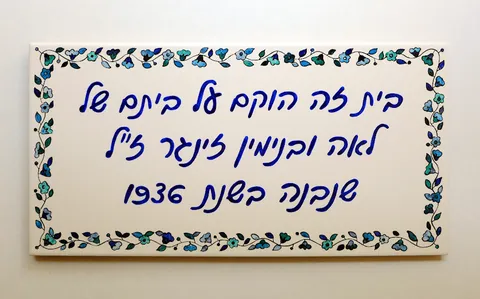 בית זה הוקם על ביתם של
לאה ובנימין זינגר ז"ל
שנבנה בשנת 1936